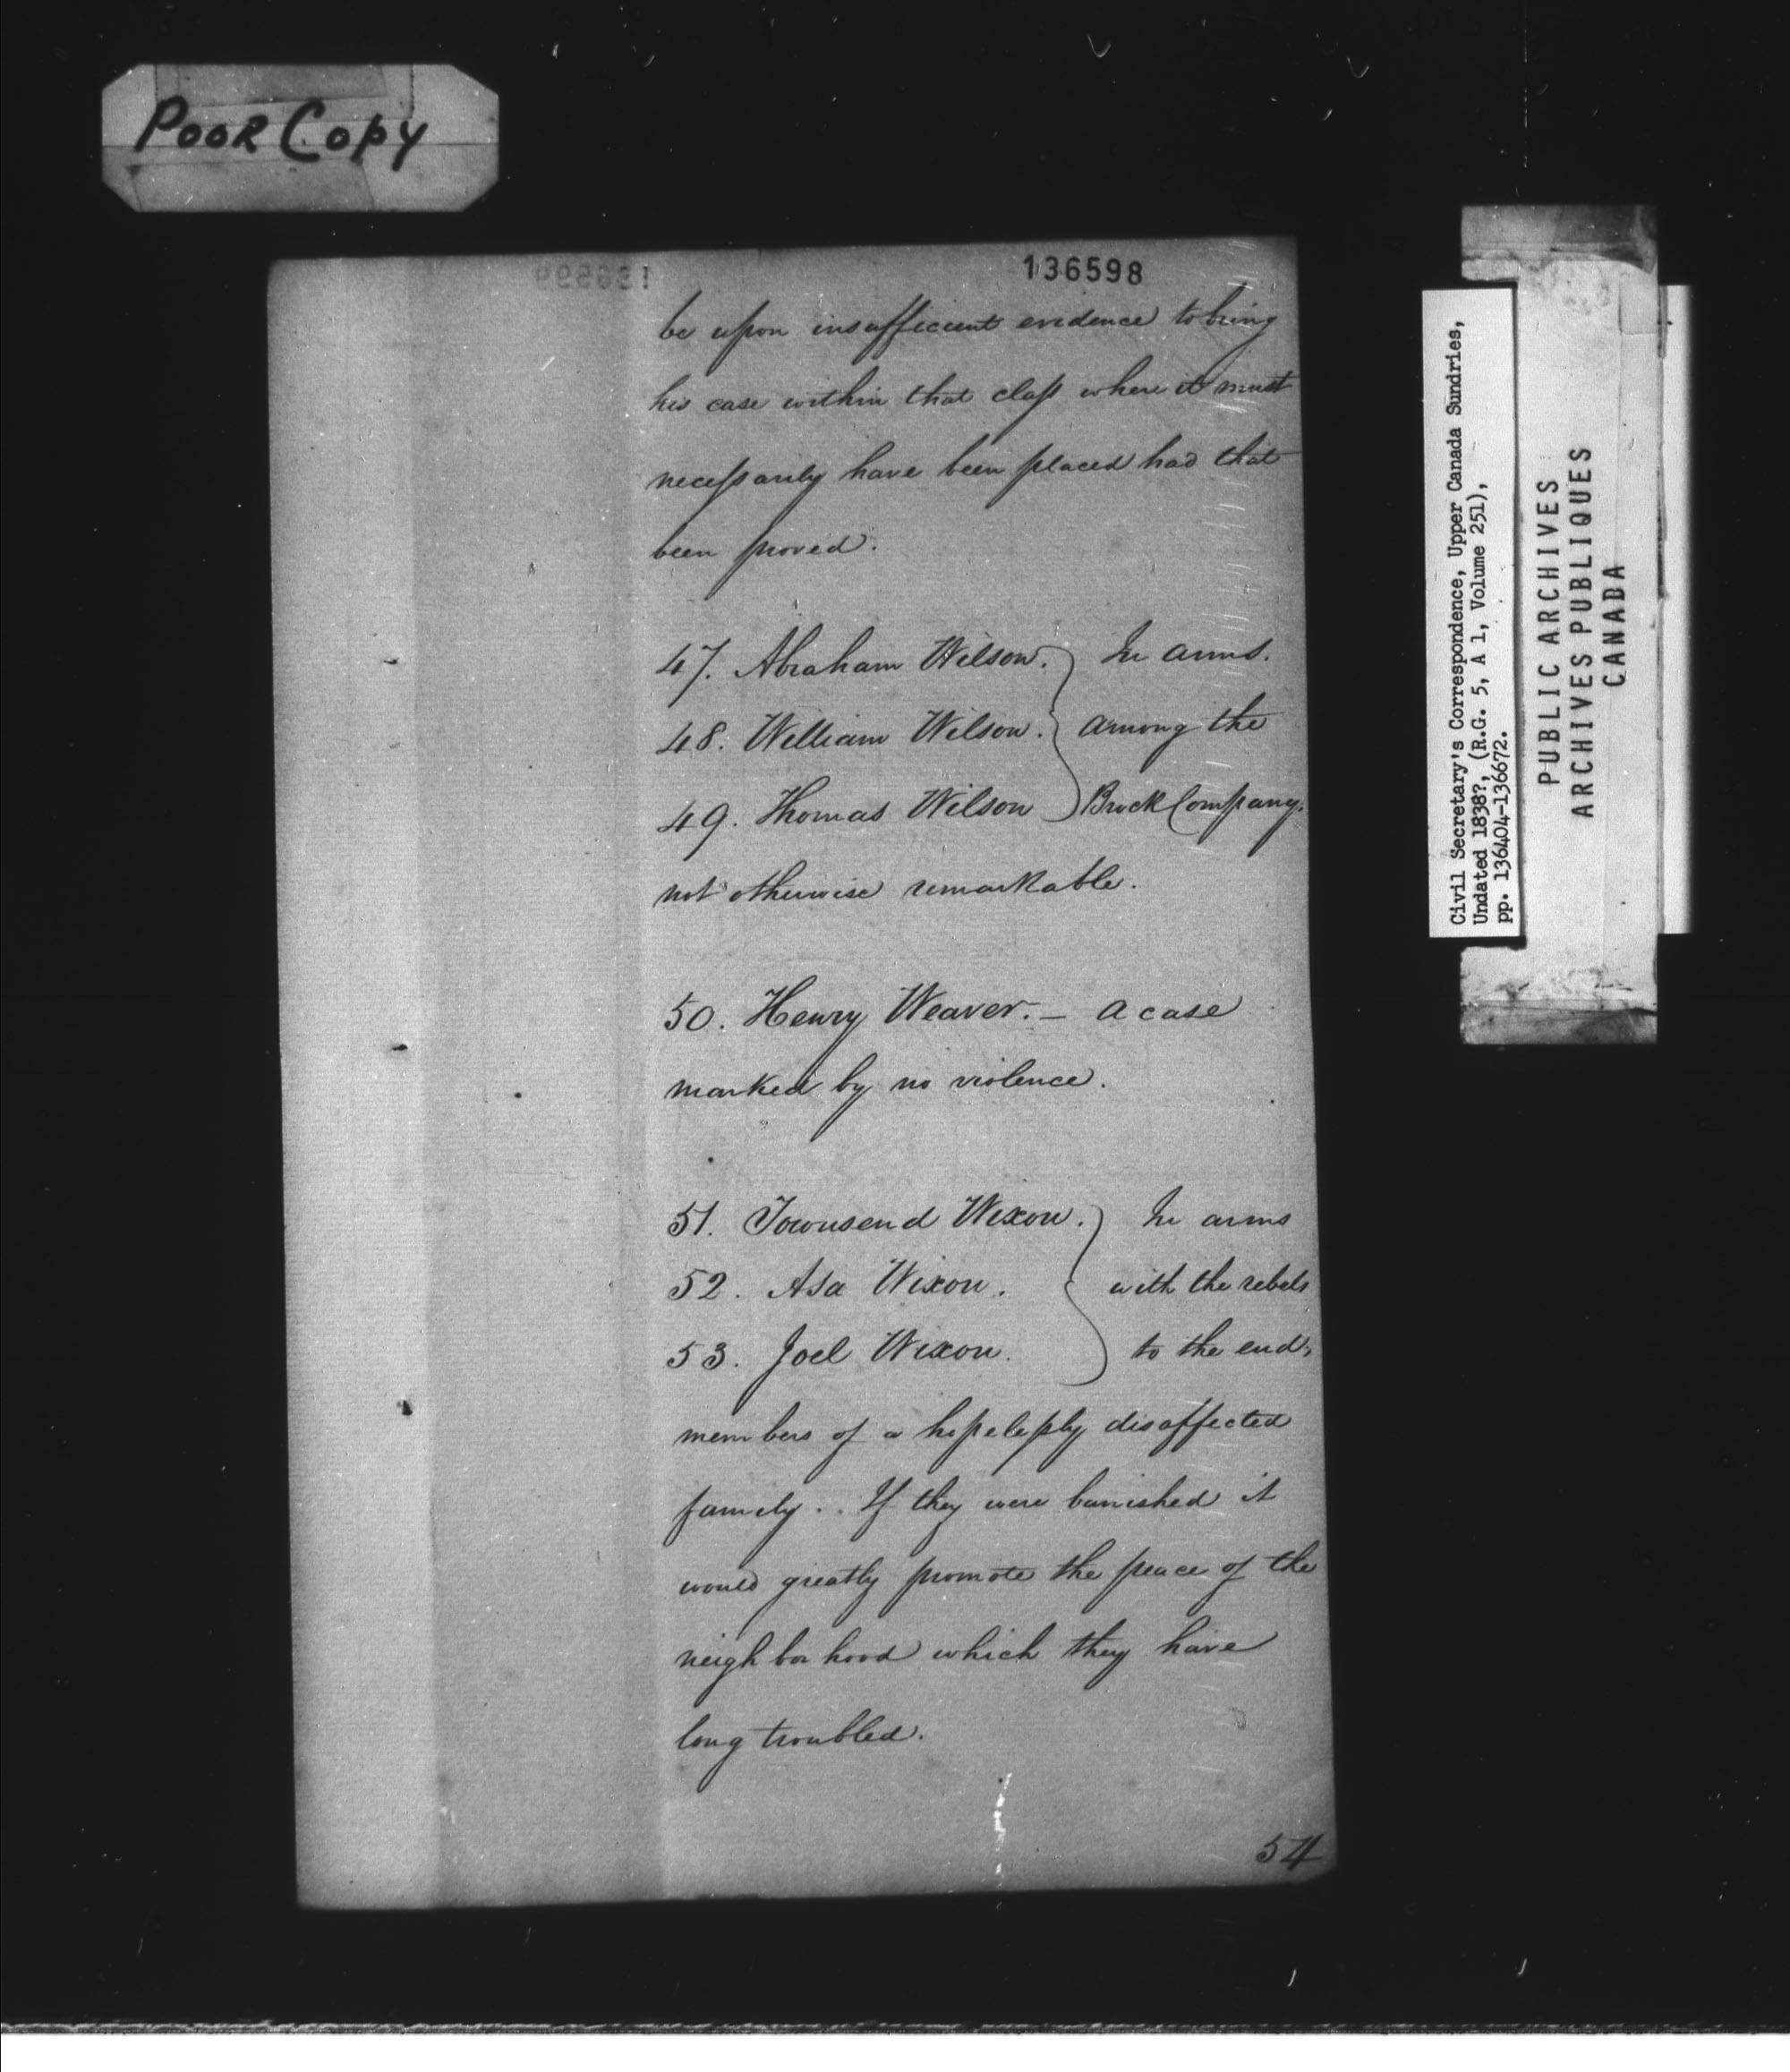 POOR COPY
136598
be upon insufficient evidence to bring
his case within that claſs where it must
neceſsarily have been placed had that
been proved.
47. Abraham Wilson. In arms.
48. William Wilson. among the
49. Thomas Wilson Brock Company,
not otherwise remarkable.
50. Henry Weaver. – a case
marked by no violence.
51. Townsend Wixon. In arms
52. Asa Wixon. with the rebels
53. Joel Wixon. to the end,
members of a hopeleſsly disaffected
family.. If they were banished it
would greatly promote the peace of the
neighborhood which they have
long troubled.
54
Civil Secretary's Correspondence, Upper Canada Sundries,
Undated 1838?, (R.G. 5, A 1, Volume 251),
pp. 136404-136672.
PUBLIC ARCHIVES
ARCHIVES PUBLIQUES
CANADA